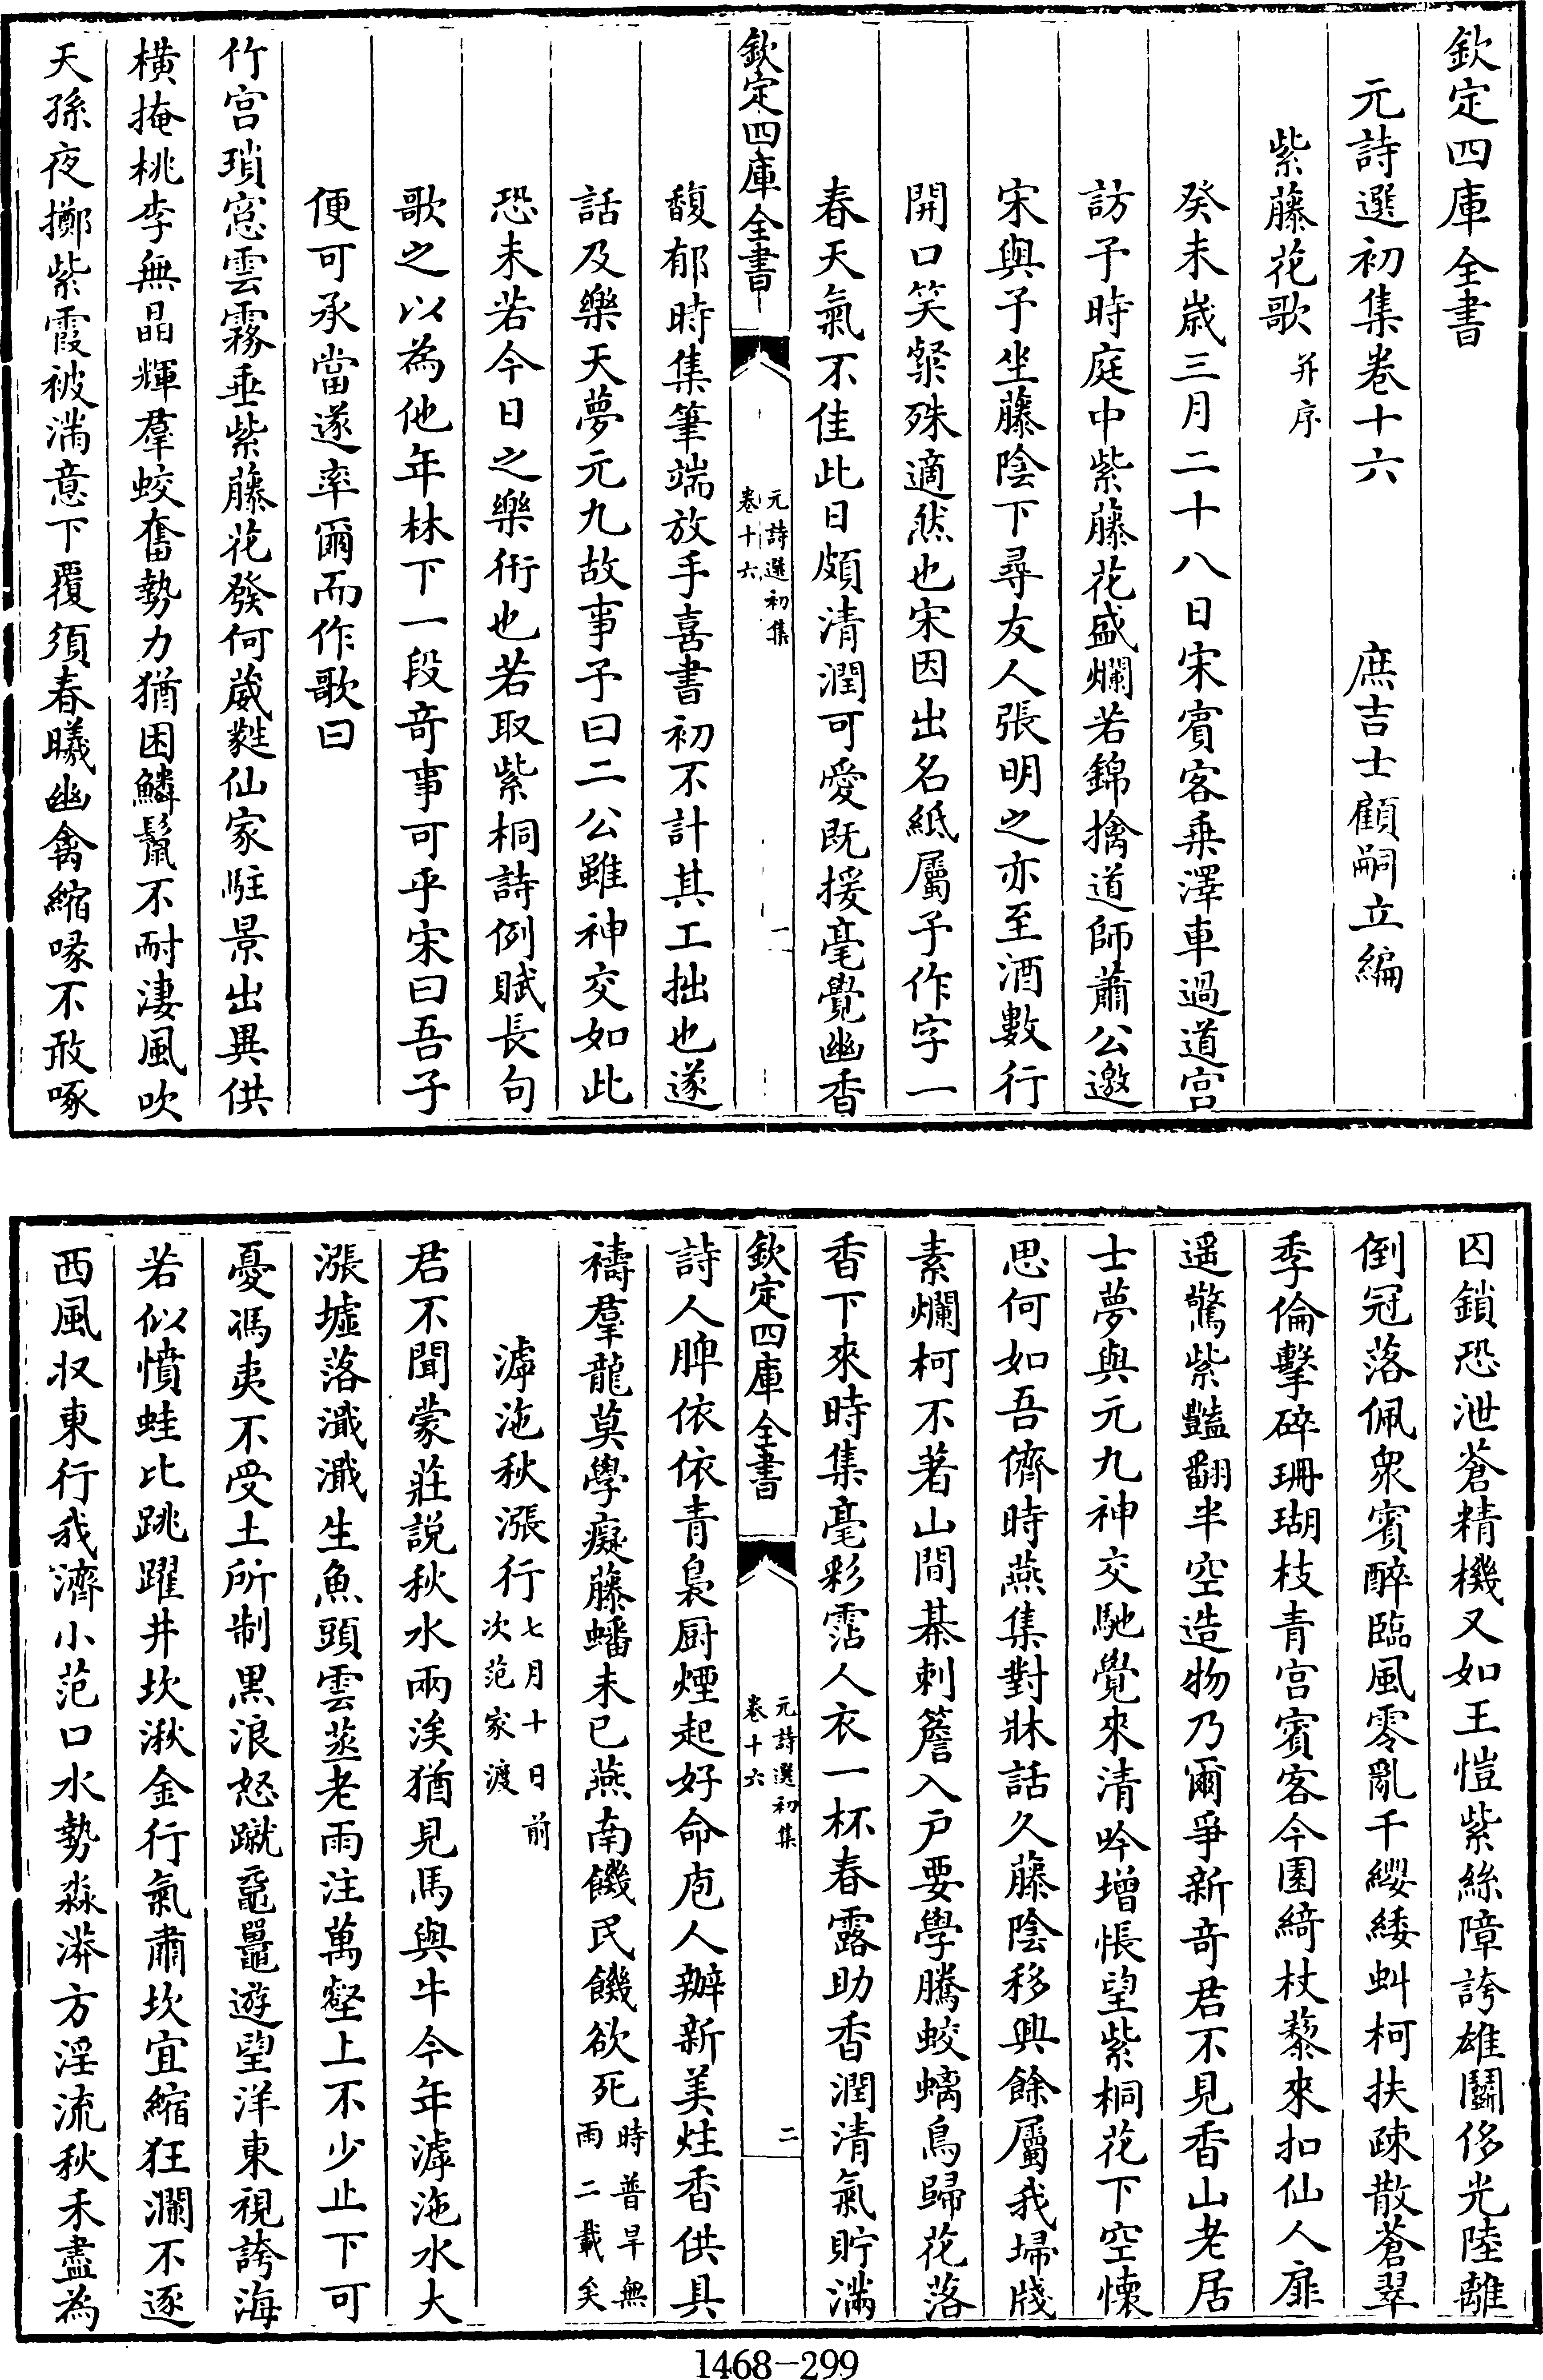 欽定四庫全書
元詩選初集卷十六　庶吉士顧嗣立編
紫藤花歌并序
癸未歳三月二十八日宋賓客乗澤車過道宫
訪予時庭中紫藤花盛爛若錦擒道師蕭公邀
宋與予坐藤陰下尋友人張明之亦至酒數行
開口笑粲殊適然也宋因出名紙屬予作字一
春天氣不佳此日頗清潤可愛既援毫覺幽香
欽定四庫全書
元詩選初集
卷十六
一
馥郁時集筆端放手喜書初不計其工拙也遂
話及樂天夢元九故事予曰二公雖神交如此
恐未若今日之樂衎也若取紫桐詩例賦長句
歌之以為他年林下一段竒事可乎宋曰吾子
便可承當遂率爾而作歌曰
竹宫瑣窓雲霧垂紫藤花發何葳蕤仙家駐景出異供
横掩桃李無晶輝羣蛟奮勢力猶困鱗鬛不耐凄風吹
天孫夜擲紫霞被滿意下覆須春曦幽禽縮喙不敢啄
囚鎖恐泄蒼精機又如王愷紫絲障誇雄鬬侈光陸離
倒冠落佩衆賓醉臨風零亂千纓緌虯柯扶疎散蒼翠
季倫擊碎珊瑚枝青宫賓客今園綺杖藜來扣仙人扉
遥驚紫豔翻半空造物乃爾爭新竒君不見香山老居
士夢與元九神交馳覺來清吟增悵望紫桐花下空懷
思何如吾儕時燕集對牀話久藤陰移興餘屬我埽牋
素爛柯不著山間棊刺簷入户要學騰蛟螭鳥歸花落
香下來時集毫彩霑人衣一杯春露助香潤清氣貯滿
欽定四庫全書
元詩選初集
卷十六
二
詩人脾依依青裊厨煙起好命庖人辦新美炷香供具
禱羣龍莫學癡藤蟠未已燕南饑民饑欲死時普旱無
雨二載矣
滹沲秋漲行七月十日前
次范家渡
君不聞蒙莊說秋水兩涘猶見馬與牛今年滹沲水大
漲墟落濈濈生魚頭雲蒸老雨注萬壑上不少止下可
憂馮夷不受土所制黒浪怒蹴黿鼉遊望洋東視誇海
若似憤蛙比跳躍井坎湫金行氣肅坎宜縮狂瀾不逐
西風收東行我濟小范口水勢淼漭方淫流秋禾盡為
1468-299